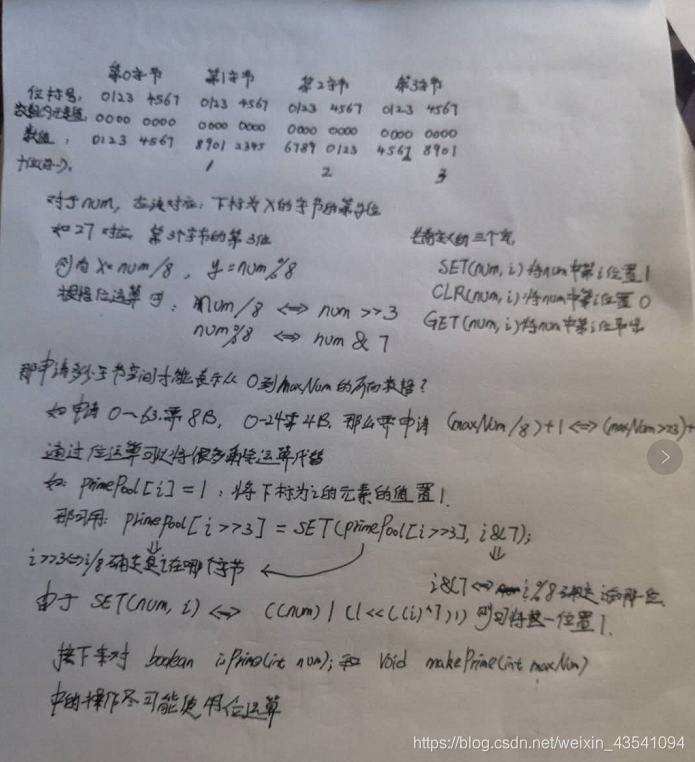 第0字节 第1字节 第2字节 第3字节
位标号: 0123 4567 0123 4567 0123 4567 0123 4567
0000 0000 0000 0000 0000 0000 0000 0000
数值: 0123 4567 8901 2345 6789 0123 4567 8901
1 2 3
对于num, 应该对应: 下标为X的字节的第y位
如27对应 第3个字节的第3位
则有 x=num/8, y=num%8
根据位运算可: num/8 <=> num >>3
num%8 <=> num & 7
先看定义的三个宏,
SET(num, i) 将num中第i位置1
CLR(num, i) 将num中第i位置0
GET(num, i) 将num中第i位取出
那申请多少字节空间才能表示从0到maxNum的所有数据?
如申请0~63需8B, 0-24需4B, 那么需申请 (maxNum/8)+1 <=> (maxNum>>3)+
通过位运算可以将很多乘除运算代替
如: primePool[i]=1, 将下标为i的元素的值置1.
那可用: primePool[i>>3] = SET(primePool[i>>3], i&7);
i>>3<=>i/8 确定其i在哪个字节
i&7 <=> i%8 确定 位
由于 SET(num, i) <=> ((num) | (1<<((i)^7))) 则可将某一位置1.
接下来对 boolean isPrime(int num); 和 void makePrime(int maxNum)
中的操作尽可能使用位运算
https://blog.csdn.net/weixin_43541094